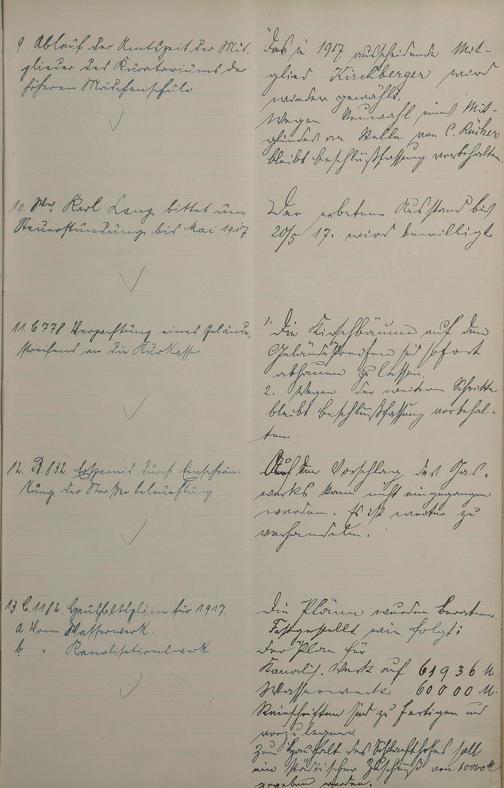 9. Ablauf der Amtszeit der Mit-
glieder des Kuratoriums der
höheren Mädchenschule
Das in 1917 ausscheidende Mit-
glied Kirchberger wird
wieder gewählt.
Wegen Neuwahl eines Mit-
gliedes an Stelle von C. Rücker
bleibt Beschlußfassung vorbehalten.
10. Karl Lang bittet um
Steuerstundung bis Mai 1917
Der erbetene Ausstand bis
20/5 17. wird bewilligt
11. C 778 Verpachtung eines Gelände-
streifens an die Kurkasse.
1. Die Kirschbäume auf den
Geländestreifen sofort
abhauen zu lassen.
2. Wegen der weiteren Schritte
bleibt Beschlußfassung vorbehal-
ten.
12. 832. Ersparnis durch Einschrän-
kung der Straßenbeleuchtung
Auf den Vorschlag des Gas-
werks kann nicht eingegangen
werden. Es ist weiter zu
verhandeln.
13 C. 1182. Haushaltspläne für 1917.
a. Vom Wasserwerk.
b. " Kanalisationswerk
Die Pläne wurden beraten.
Festgestellt wie folgt:
Der Plan für
Kanalis. Werk auf 61936 M
Wasserwerk 60000 M.
Reinschriften sind zu fertigen und
vorzulegen.
Zum Haushalt des Schlachthofes soll
ein städtischer Zuschuß von 10000 M
gegeben werden.